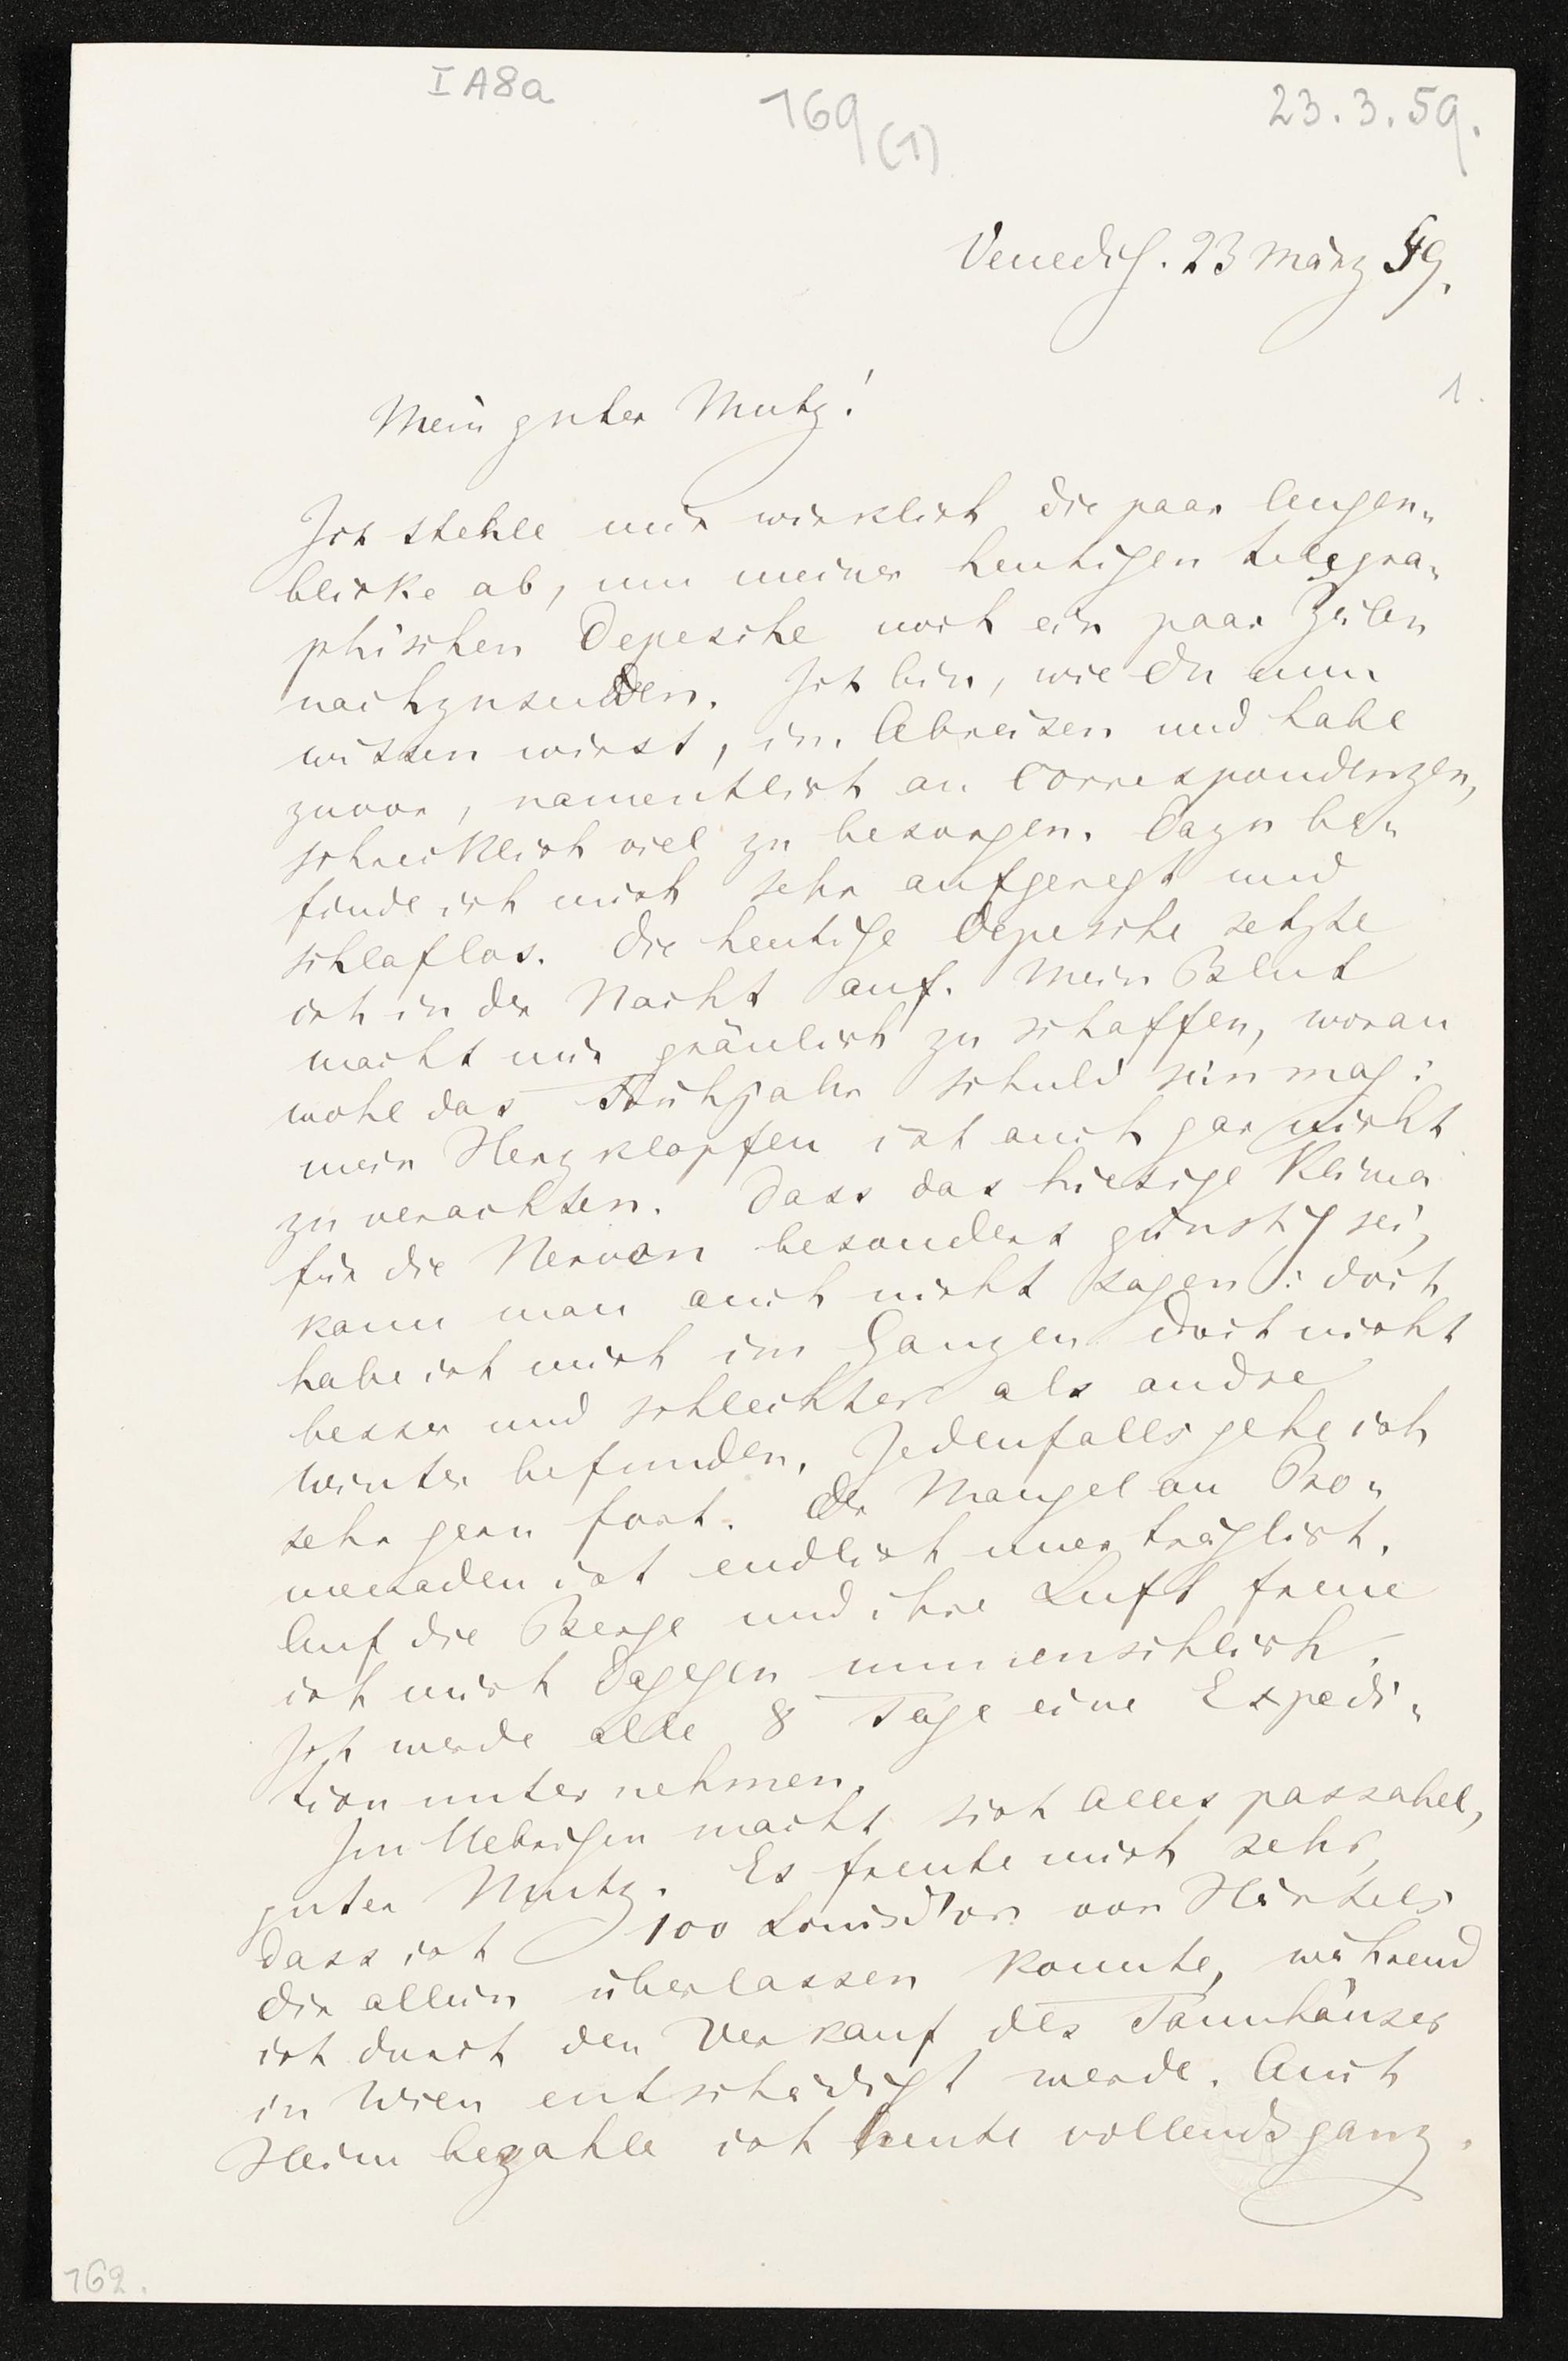 I A 8 a
169 (1)
23.3.59.
Venedig. 23 März 59.
1.
Mein guter Mutz!
Ich stehle mir wirklich die paar Augen-
blicke ab, um meiner heutigen telegra-
phischen Depesche noch ein paar Zeilen
nachzusenden. Ich bin, wie Du nun
wissen wirst, im Abreisen und habe
zuvor, namentlich an Correspondenzen,
schrecklich viel zu besorgen. Dazu be-
finde ich mich sehr aufgeregt und
schlaflos. Die heutige Depesche setzte
ich in der Nacht auf. Mein Blut
macht mir gräulich zu schaffen, woran
wohl das Frühjahr schuld sein mag:
mein Herzklopfen ist auch gar nicht
zu verachten. Dass das hiesige Klima
für die Nerven besonders günstig sei,
kann man auch nicht sagen: doch
habe ich mich im Ganzen doch nicht
besser und schlechter als andre
Winter befunden. Jedenfalls gehe ich
sehr gern fort. Der Mangel an Pro-
menaden ist endlich unerträglich.
Auf die Berge und ihre Luft freue
ich mich dagegen unmenschlich.
Ich werde alle 8 Tage eine Expedi-
tion unternehmen.
Im Uebrigen macht sich Alles passabel,
guter Mutz. Es freute mich sehr,
dass ich 100 Louisd'or von Härtels
Dir allein überlassen konnte, während
ich durch den Verkauf des Tannhäuser
in Wien entschädigt werde. Auch
Heim bezahle ich heute vollends ganz.
162.